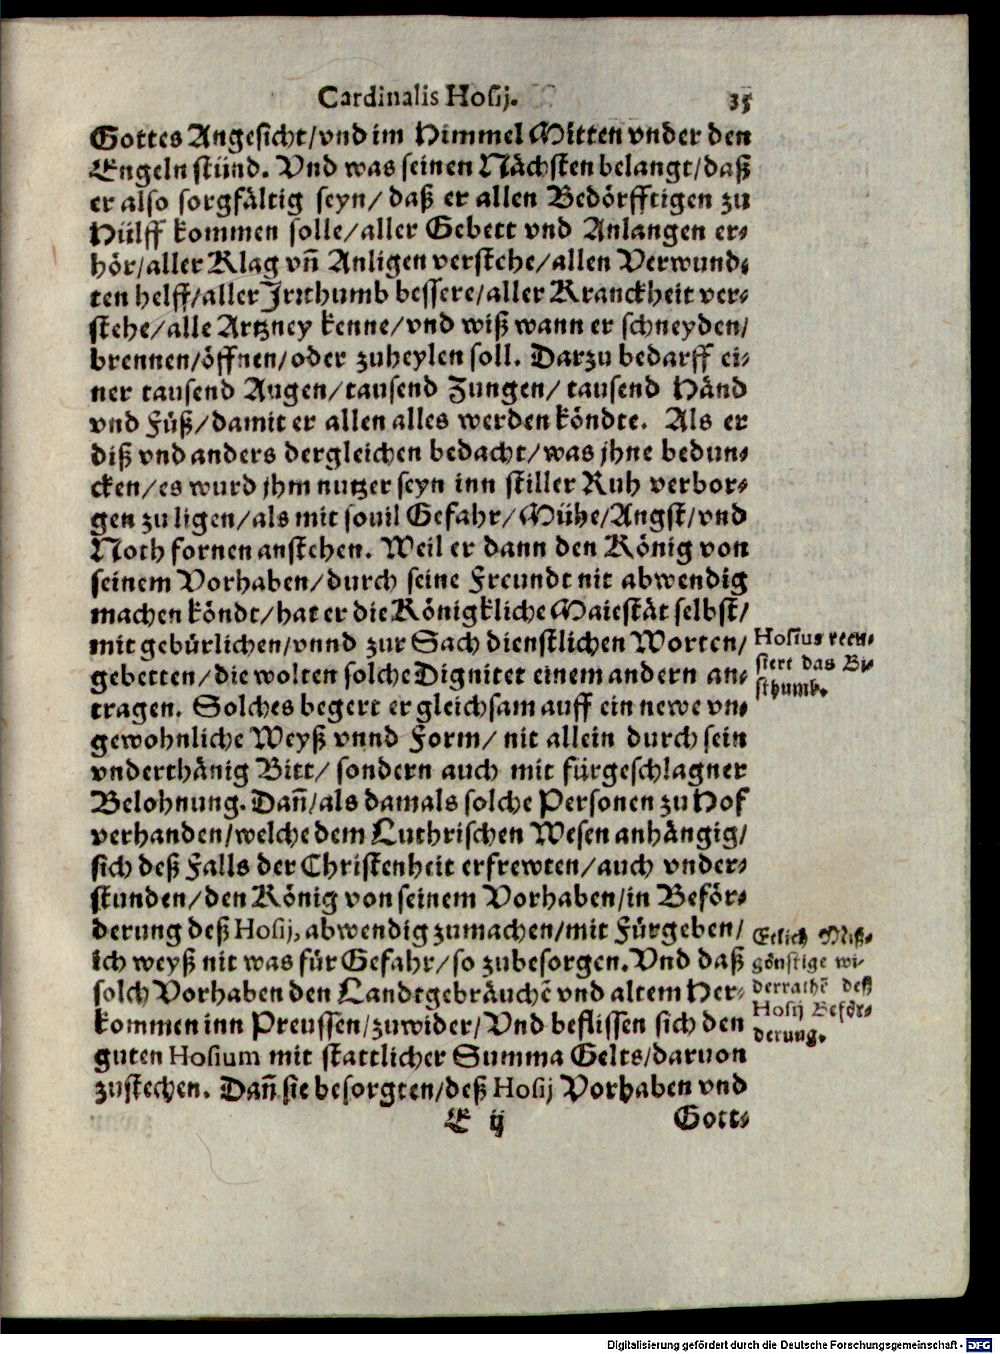 Cardinalis Hosij. 35
Gottes Angesicht/vnd im Himmel Mitten vnder den
Engeln stünd. Vnd was seinen Nächsten belangt/daß
er also sorgfältig seyn/ daß er allen Bedörfftigen zu
Hülff kommen solle/aller Gebett vnd Anlangen er-
hör/aller Klag vñ Anligen verstehe/allen Verwund-
ten helff/aller Irrthumb bessere/aller Kranckheit ver-
stehe/alle Artzney kenne/vnd wiß wann er schneyden/
brennen/öffnen/oder zuheylen soll. Darzu bedarff ei-
ner tausend Augen/tausend Zungen/ tausend Händ
vnd Füß/damit er allen alles werden köndte. Als er
diß vnd anders dergleichen bedacht/was jhne bedun-
cken/es wurd jhm nutzer seyn inn stiller Ruh verbor-
gen zu ligen/als mit souil Gefahr/Mühe/Angst/vnd
Noth fornen anstehen. Weil er dann den König von
seinem Vorhaben/durch seine Freundt nit abwendig
machen köndt/hat er die Königkliche Maiestät selbst/
mit gebürlichen/vnnd zur Sach dienstlichen Worten/
gebetten/die wolten solche Dignitet einem andern an-
tragen. Solches begert er gleichsam auff ein newe vn-
gewohnliche Weyß vnnd Form/ nit allein durch sein
vnderthänig Bitt/ sondern auch mit fürgeschlagner
Belohnung. Dañ/als damals solche Personen zu Hof
verhanden/welche dem Luthrischen Wesen anhängig/
sich deß Falls der Christenheit erfrewten/auch vnder-
stunden/den König von seinem Vorhaben/in Beför-
derung deß Hosij, abwendig zumachen/mit Fürgeben/
ich weyß nit was für Gefahr/so zubesorgen. Vnd daß
solch Vorhaben den Landtgebräuchẽ vnd altem Her-
kommen inn Preussen/zuwider/Vnd beflissen sich den
guten Hosium mit stattlicher Summa Gelts/daruon
zustechen. Dañ sie besorgten/deß Hosij Vorhaben vnd
E ij Gott-
Hosius recu-
siert das Bi-
sthumb.
Etlich Miß-
gönstige wi-
derrathẽ deß
Hosij Beför-
derung.
Digitalisierung gefördert durch die Deutsche Forschungsgemeinschaft - DFG